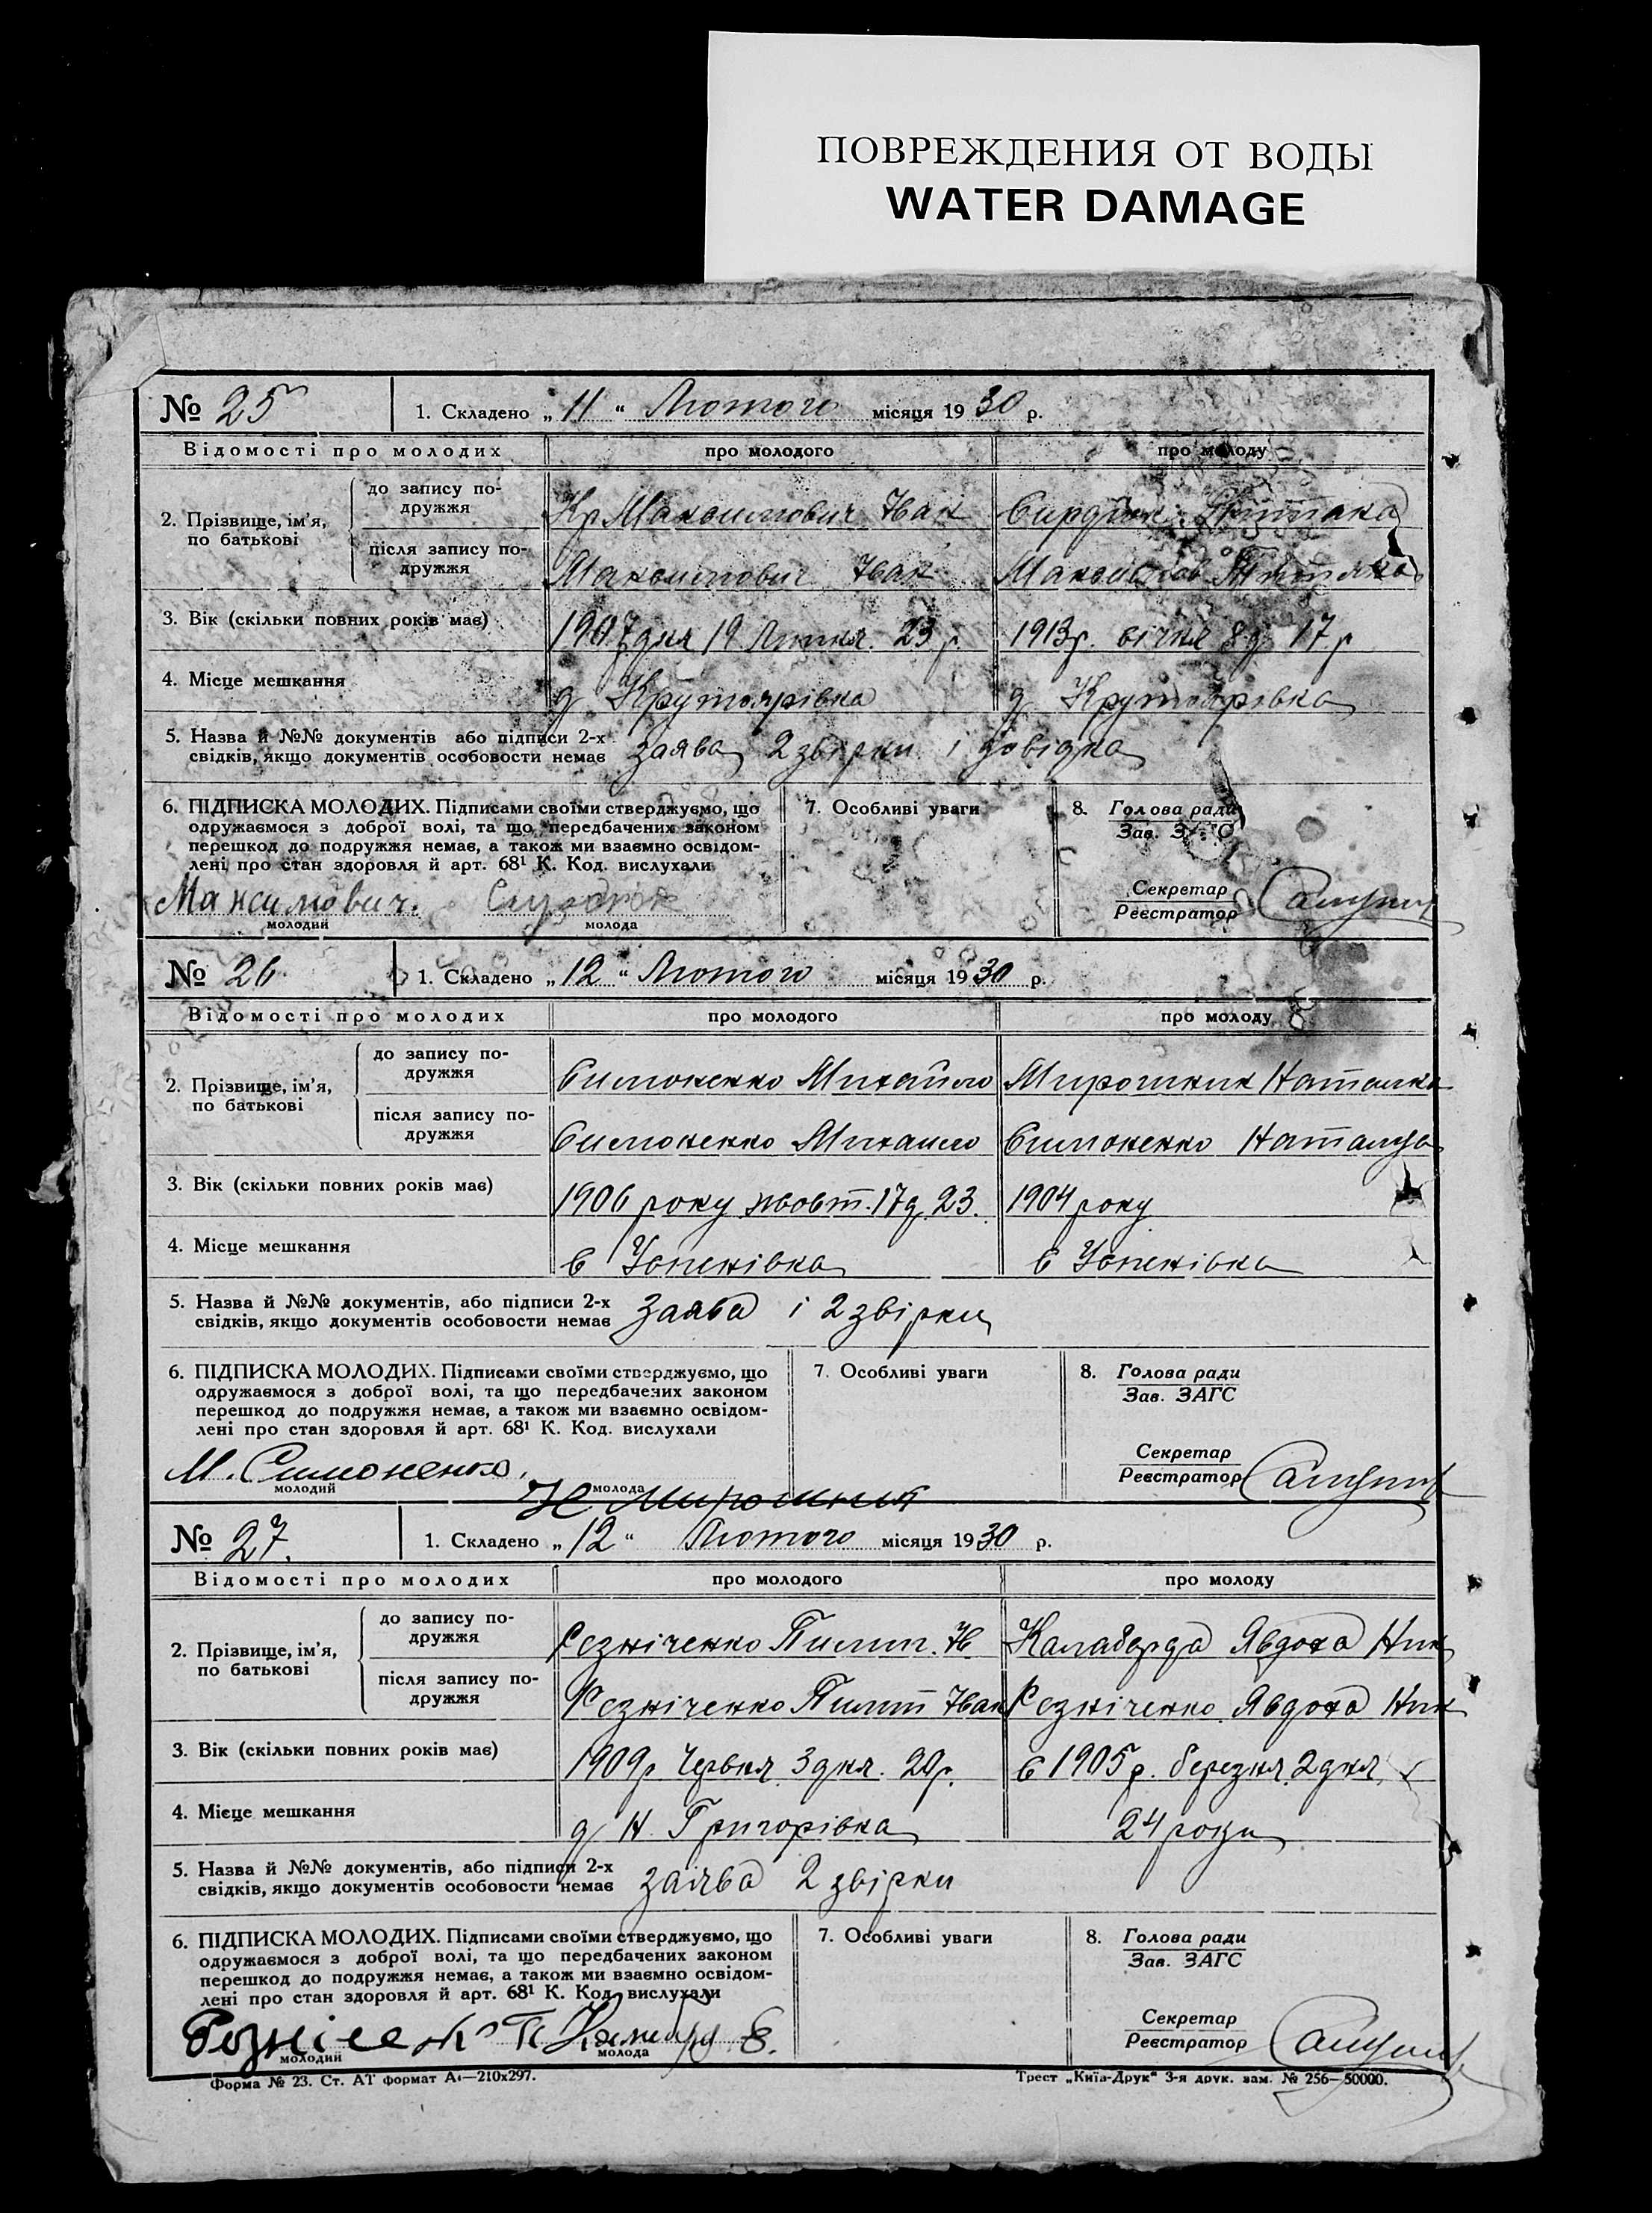 ПОВРЕЖДЕНИЯ ОТ ВОДЫ
WATER DAMAGE
№ 25 1. Складено „ 11 “ Лютого місяця 19 30 р.
Відомості про молодих про молодого про молоду
2. Прізвище, ім’я, по батькові
до запису подружжя Максимович Іван
після запису подружжя Максимович Іван
3. Вік (скільки повних років має) 1907 дня 19 23 р. 1913 р. січня 8 д. 17 р
4. Місце мешкання д Крутоярівка д Крутоярівка
5. Назва й №№ документів або підписи 2-х заява 2 звірки і довідка
свідків, якщо документів особовости немає
6. ПІДПИСКА МОЛОДИХ. Підписами своїми стверджуємо, що 7. Особливі уваги 8. Голова ради
одружаємося з доброї волі, та що передбачених законом Зав. ЗАГС
перешкод до подружжя немає, а також ми взаємно освідом-
лені про стан здоровля й арт. 68¹ К. Код. вислухали Секретар
Максимович. Реєстратор
молодий молода
№ 26 1. Складено „ 12 “ Лютого місяця 19 30 р.
Відомості про молодих про молодого про молоду
2. Прізвище, ім’я, по батькові
до запису подружжя Симоненко Михайло Мирошник Наталка
після запису подружжя Симоненко Михаило Симоненко
3. Вік (скільки повних років має) 1906 року жовт. 17 д. 23. 1904 року
4. Місце мешкання с Успенівка с Успенівка
5. Назва й №№ документів, або підписи 2-х Заява і 2 звірки
свідків, якщо документів особовости немає
6. ПІДПИСКА МОЛОДИХ. Підписами своїми стверджуємо, що 7. Особливі уваги 8. Голова ради
одружаємося з доброї волі, та що передбачених законом Зав. ЗАГС
перешкод до подружжя немає, а також ми взаємно освідом-
лені про стан здоровля й арт. 68¹ К. Код. вислухали Секретар
М. Симоненко. Реєстратор
молодий молода
Н Мирошник
№ 27. 1. Складено „ 12 “ Лютого місяця 19 30 р.
Відомості про молодих про молодого про молоду
2. Прізвище, ім’я, по батькові
до запису подружжя Резніченко Пилип. Ів. Явдоха Ник
після запису подружжя Резніченко Пилип Іван Резніченко Явдоха Ник
3. Вік (скільки повних років має) 1909 р Червня 3 дня. 20 р. с 1905 р. березня 2 дня
4. Місце мешкання д Н. Григорівка 24 роки
5. Назва й №№ документів, або підписи 2-х заява 2 звірки
свідків, якщо документів особовости немає
6. ПІДПИСКА МОЛОДИХ. Підписами своїми стверджуємо, що 7. Особливі уваги 8. Голова ради
одружаємося з доброї волі, та що передбачених законом Зав. ЗАГС
перешкод до подружжя немає, а також ми взаємно освідом-
лені про стан здоровля й арт. 68¹ К. Код. вислухали Секретар
Реєстратор
молодий молода
Форма № 23. Ст. АТ формат А₄—210х297. Трест „Київ-Друк“ 3-я друк. зам. № 256—50000.